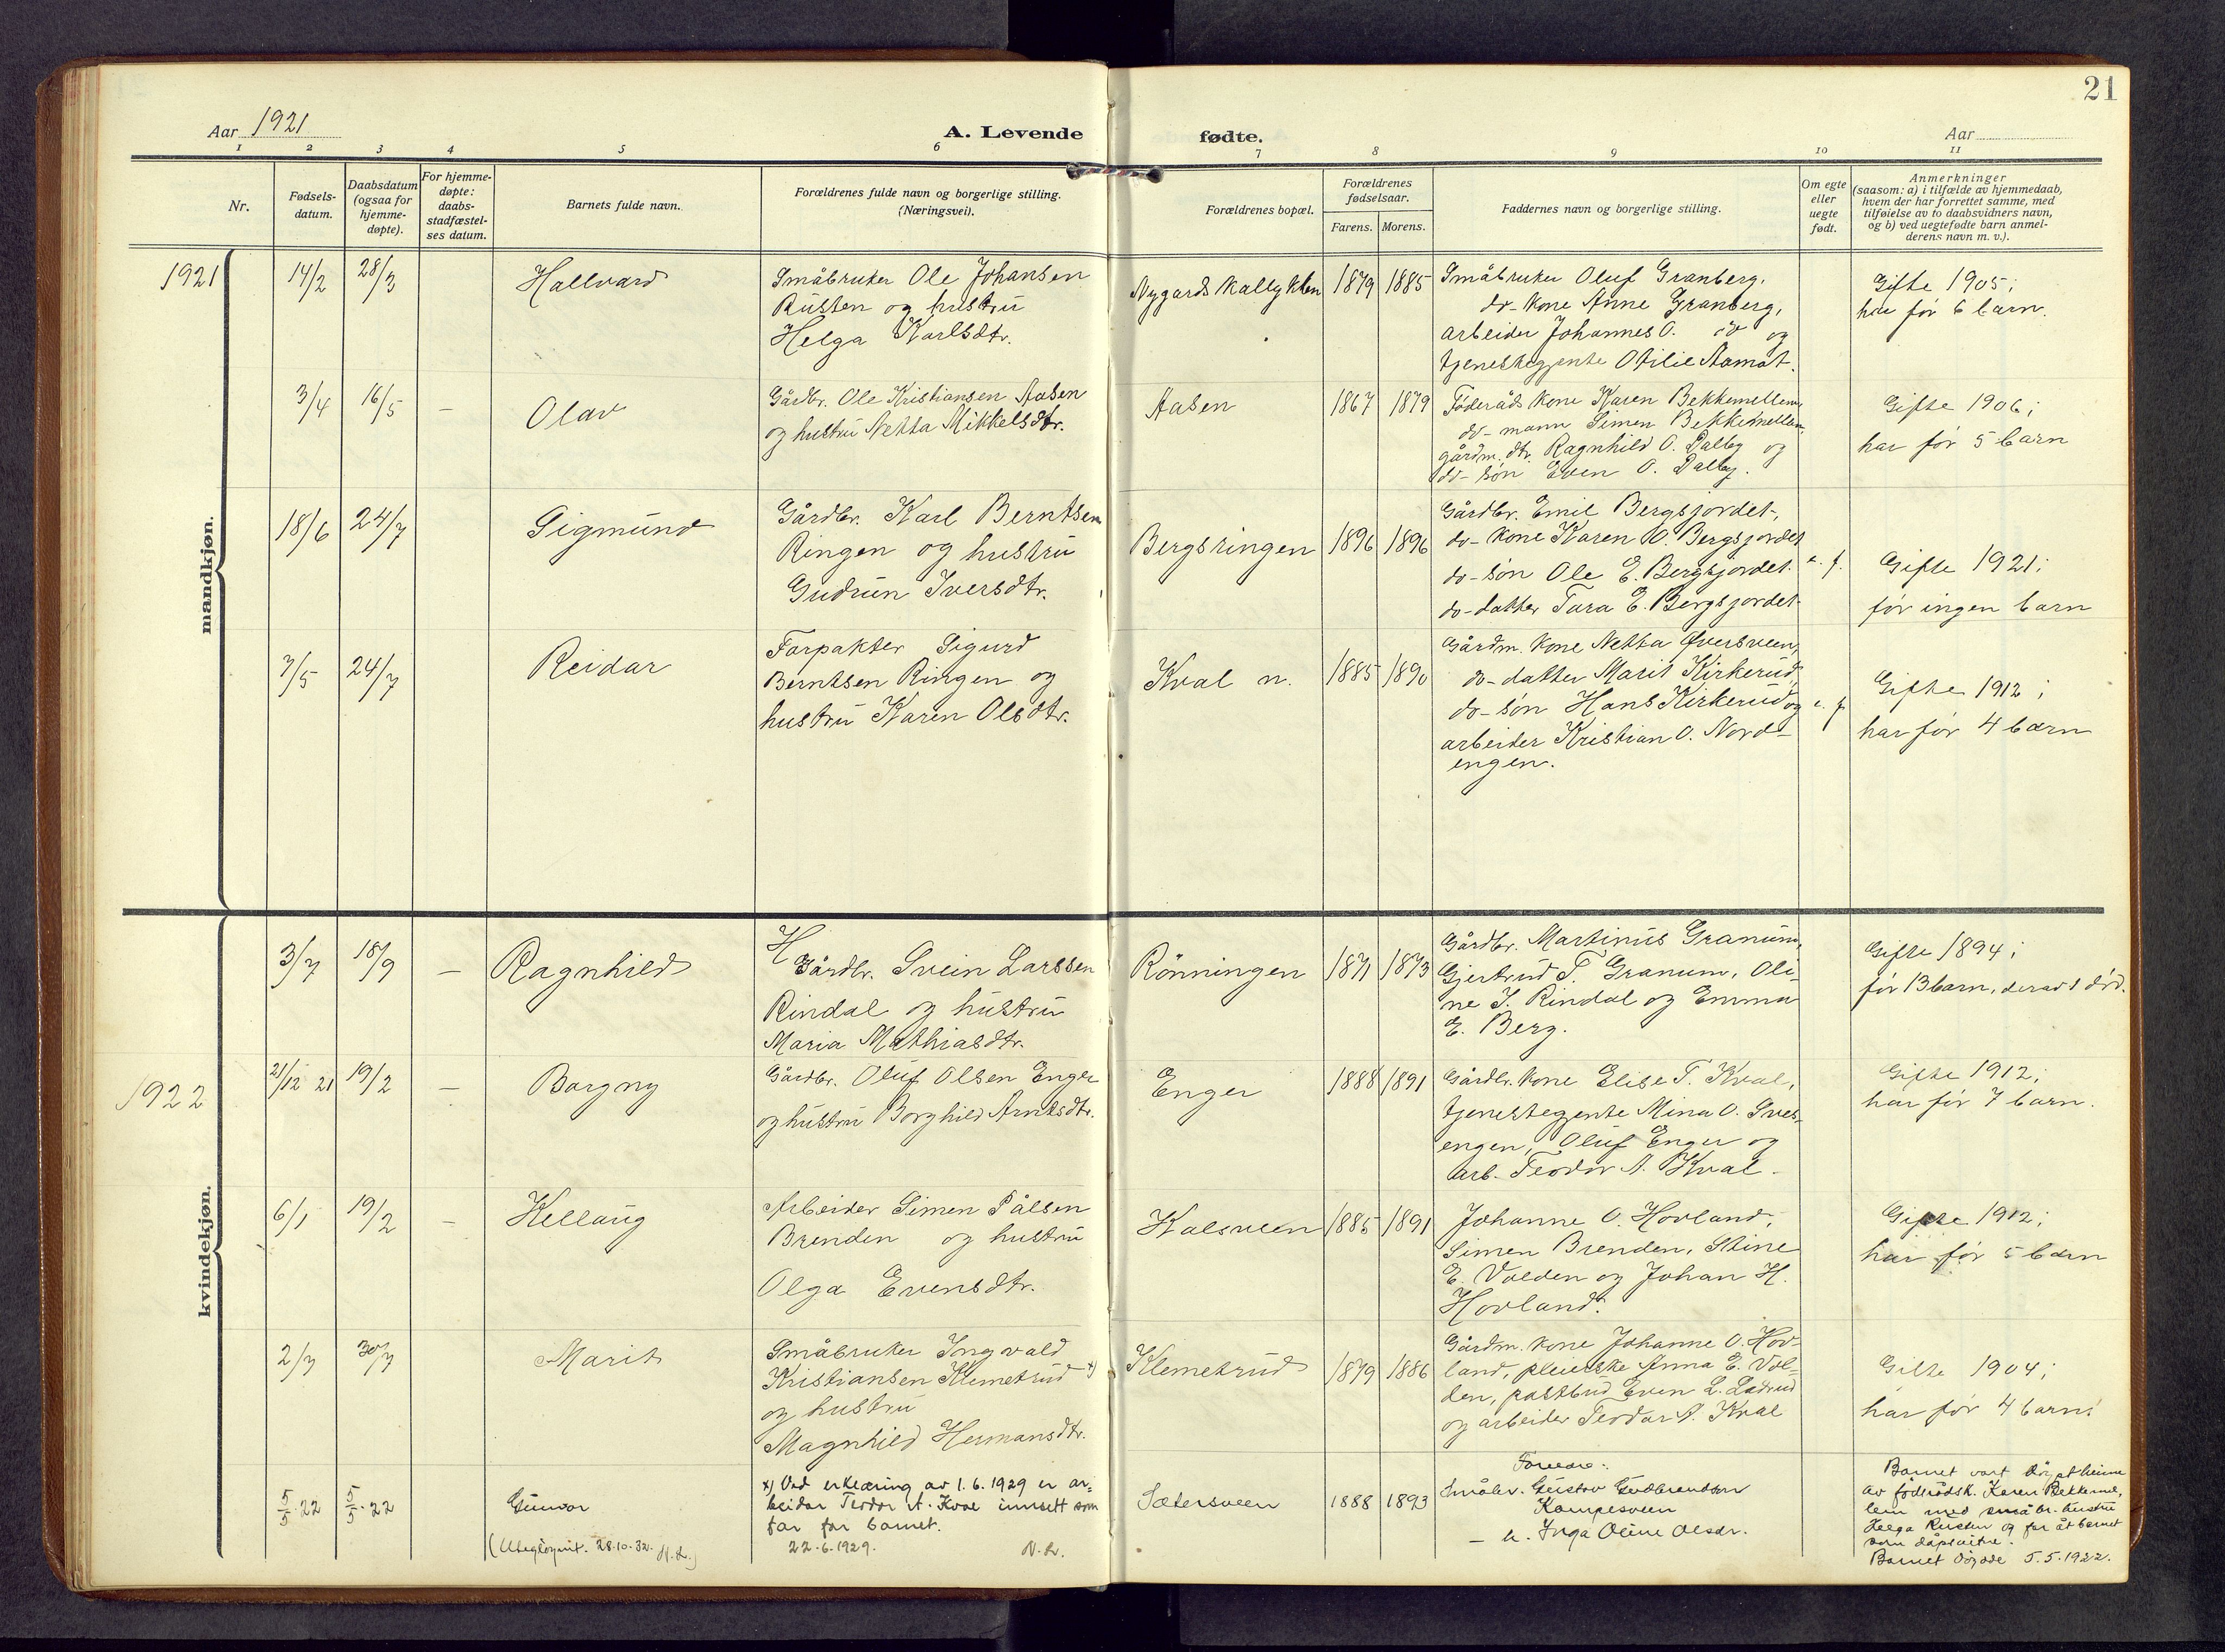 21
Aar 1921
A. Levende fødte.
Aar
1 2 3 4 5 6 7 8 9 10 11
Nr.
Fødsels-
datum.
Daabsdatum
(ogsaa for
hjemme-
døpte).
For hjemme-
døpte:
daabs-
stadfæstel-
ses datum.
Barnets fulde navn.
Forældrenes fulde navn og borgerlige stilling.
(Næringsvei).
Forældrenes bopæl.
Forældrenes
fødselsaar.
Farens. Morens.
Faddernes navn og borgerlige stilling.
Om egte
eller
uegte
født.
Anmerkninger
(saasom: a) i tilfælde av hjemmedaab,
hvem der har forrettet samme, med
tilføielse av to daabsvidners navn,
og b) ved uegtefødte barn anmel-
derens navn m. v.).
mandkjøn.
1921
14/2
28/3
Hallvard
Småbruker Ole Johansen
Rusten og hustru
Helga Karlsdtr.
Nygardskallykken
1879
1885
Småbruker Oluf Granberg,
do- kone Anne Granberg,
arbeider Johannes O. do og
tjenestegjente Otilie Aamot.
Gifte 1905;
har før 6 barn.
3/4
16/5
–
Olav
Gårdbr. Ole Kristiansen Aasen
og hustru Netta Mikkelsdtr.
Aasen
1867
1879
Føderåds kone Karen Bekkemellem,
do- mann Simen Bekkemellem,
gårdm. dtr. Ragnhild O. Dalby og
do- søn Even O. Dalby.
Gifte 1906;
har før 5 barn
18/6
24/7
Sigmund
Gårdbr. Karl Berntsen
Ringen og hustru
Gudrun Iversdtr.
Bergsringen
1896
1896
Gårdbr. Emil Bergsjordet,
do- kone Karen O. Bergsjordet
do- søn Ole E. Bergsjordet.
do- datter Tara E. Bergsjordet
e. f.
Gifte 1921;
før ingen barn
7/5
24/7
Reidar
Forpakter Sigurd
Berntsen Ringen og
hustru Karen Olsdtr.
Kval n.
1885
1890
Gårdm. kone Netta Øversveen,
do- datter Marit Kirkerud,
do- søn Hans Kirkerud og
arbeider Kristian O. Nord-
engen.
e. f.
Gifte 1912;
har før 4 barn
kvindekjøn.
3/7
18/9
–
Ragnhild
H
Gårdbr. Svein Larssen
Rindal og hustru
Maria Mathiasdtr.
Rönningen
1871
1873
Gårdbr. Martinus Granum,
Gjertrud T. Granum, Oli-
ne S. Rindal og Emma
E. Berg.
Gifte 1894;
før 13 barn, derav 1 død.
1922
21/12 21
19/2
–
Borgny
Gårdbr. Oluf Olsen Enger
og hustru Borghild Arntsdtr.
Enger
1888
1891
Gårdbr. kone Elise T. Kval,
tjenestegjente Mina O. Sves-
engen, Oluf Enger og
arb. Teodor A. Kval.
Gifte 1912;
har før 7 barn.
6/1
19/2
–
Kellaug
Arbeider Simen Pålsen
Brenden og hustru
Olga Evensdtr.
Kalsveen
1885
1891
Johanne O. Hovland,
Simen Brenden, Stine
E. Volden og Johan H.
Hovland.
Gifte 1912;
har før 5 barn
2/7
30/7
Marit
Småbruker Ingvald
Kristiansen Klemetrud x)
og hustru
Magnhild Hermansdtr.
Klemetrud
1879
1886
Gårdm. kone Johanne O. Hov-
land, pleierske Anna E. Vol-
den, postbud Even L. Ladrud
og arbeider Teodor A. Kval
Gifte 1904;
har før 4 barn.
5/5.22
5/5.22
Gunvor
(Utleglogmit. 28.10.32. N.L.)
x) Ved erklæring av 1.6.1929 er ar-
beidar Teodor A. Kval innsett som
far for barnet.
22.6.1929. N.L.
Sætersveen
1888
1893
Foreldre:
Småbr. Gustav Gudbrandsen
Kampesveen
– h. Inga Oline Olsdr.
Barnet vart döypt heime
av föderådsk. Karen Bekkemel-
lem med småbr. hustru
Helga Rusten og far åt barnet
som dåpsvitne.
Barnet döydde 5.5.1922.